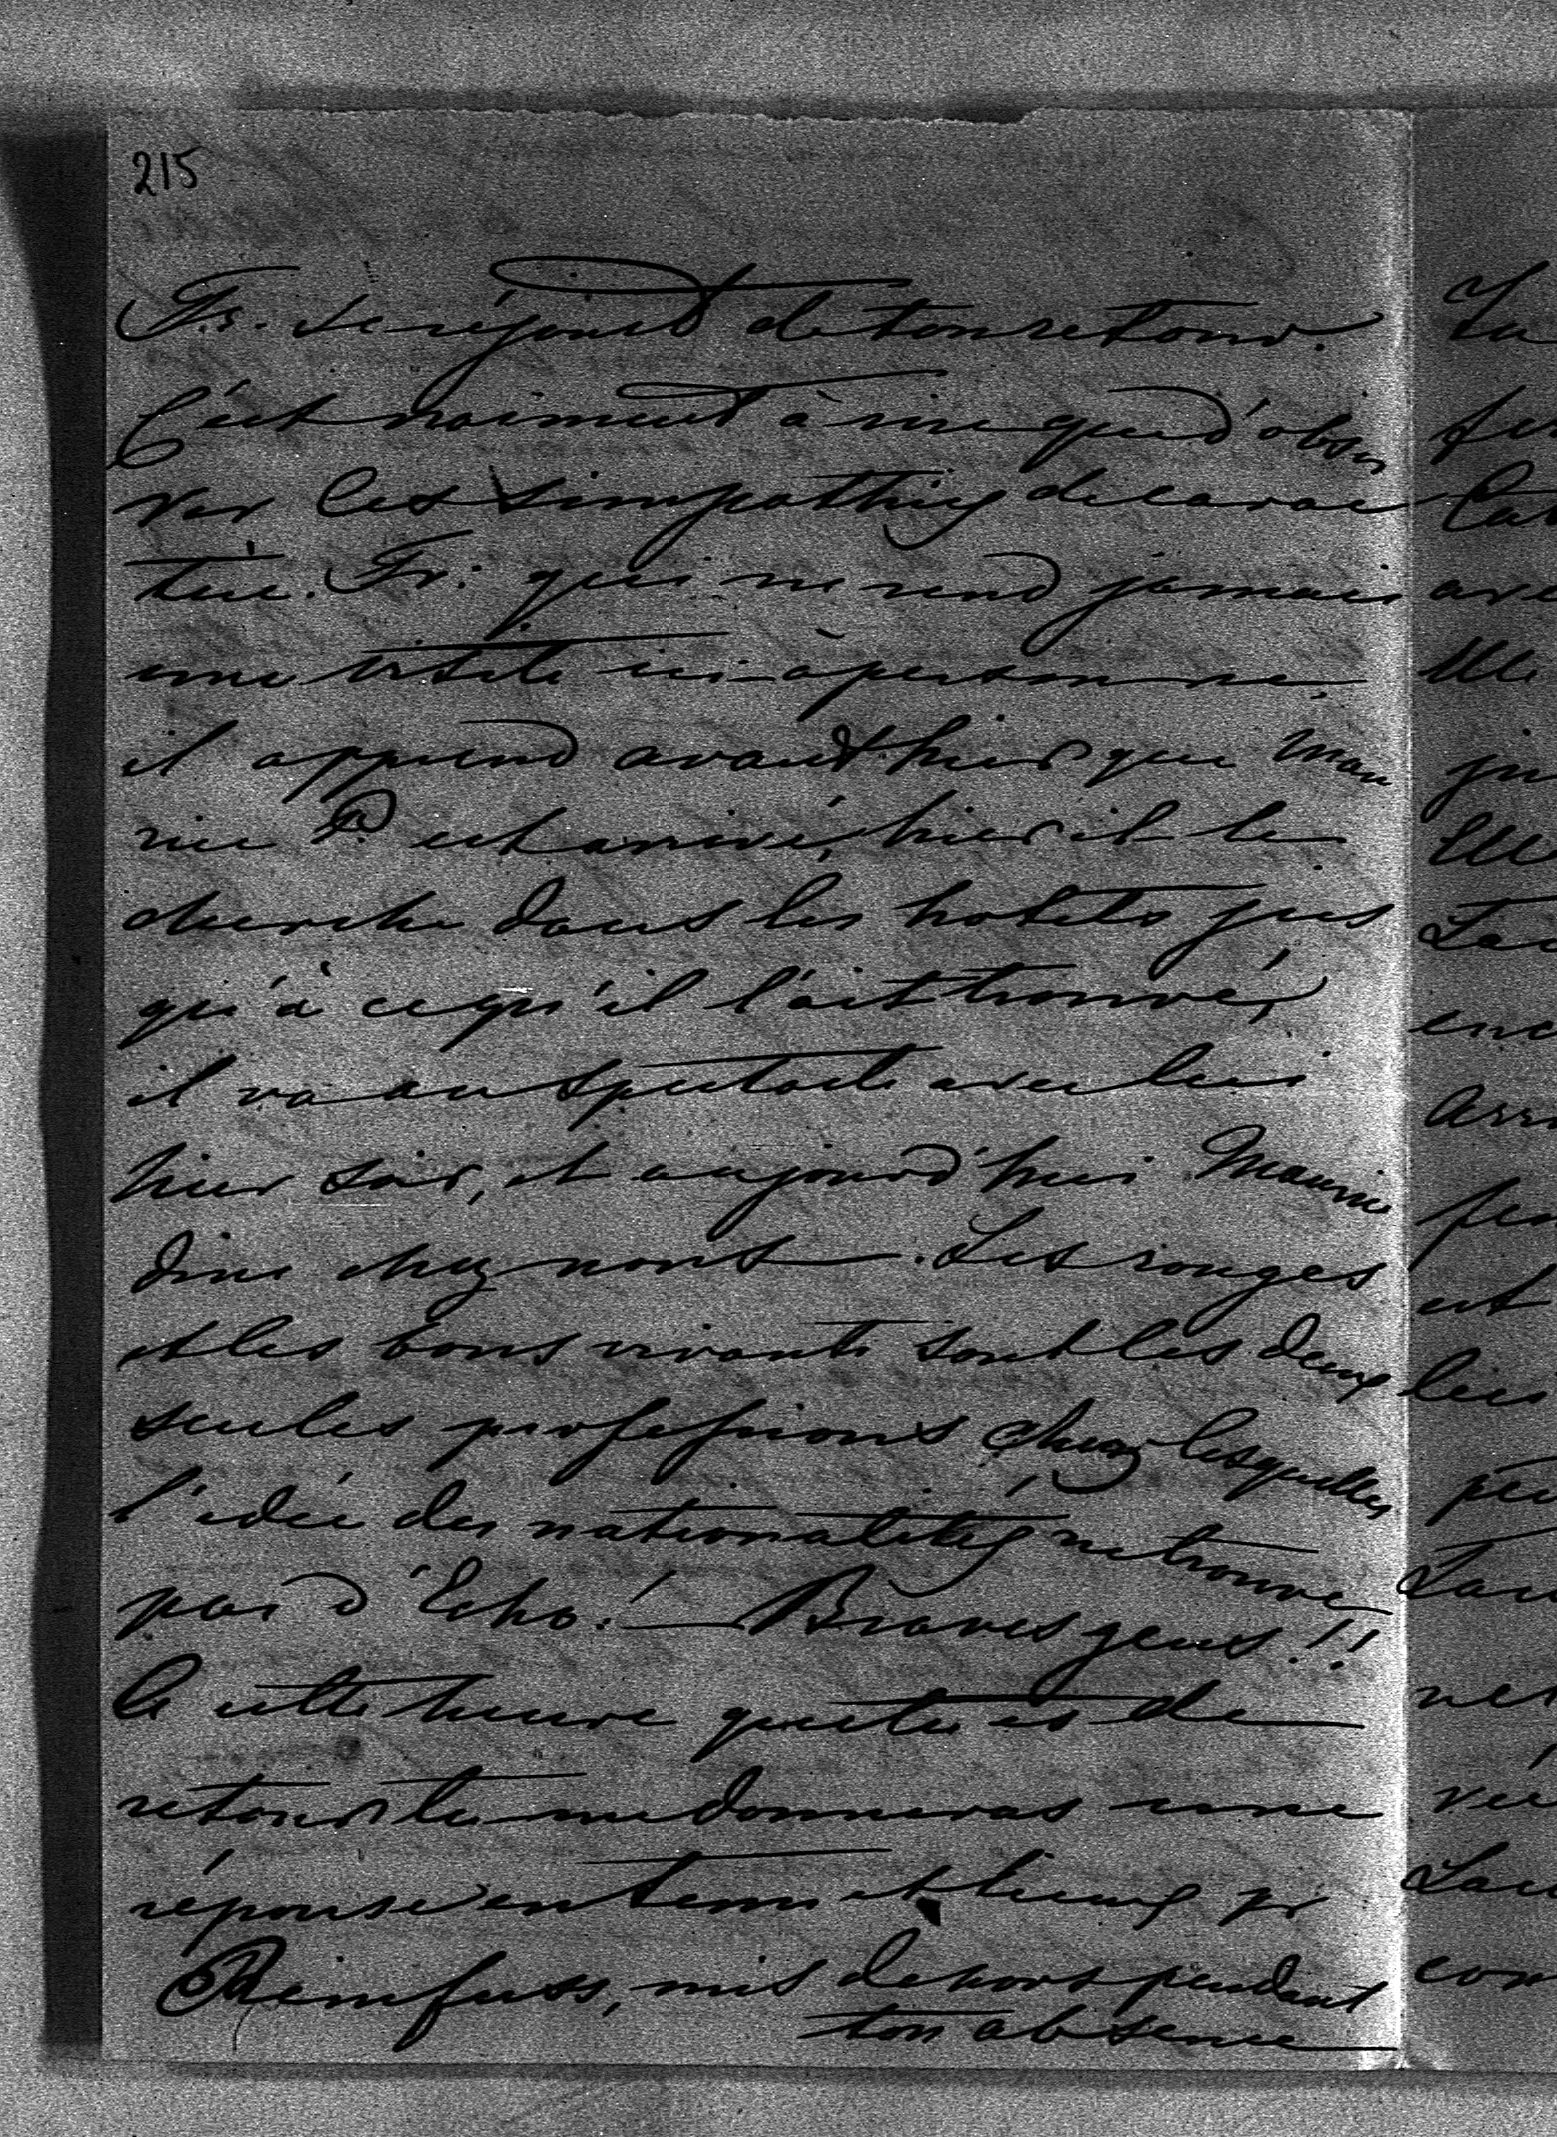 215
Fr. se réjouit de ton retour.
C'est vraiment à ne que d'obser
ver ces simpathies de carac
tère. Fr: qui ne rend jamais
une visite ici à personne,
il apprend avant hier que Mau
rice est arrivé, hier il le
cherche dans les hotels jus
qu'à ce qu'il l'ait trouvé,
il va au spectacle avec lui
hier soir, et aujourd'hui Maurice
dine chez nous. Les rouges
et les bons vivants sont les deux
seules professions chez lesquelles
l'idée des nationalités ne trouve
pas d'Echo! — Braves gens!!
A cette heure que tu es de
retour tu me donneras une
réponse en tems et lieux pr
Reinfuss, mis dehors pendant
ton absence